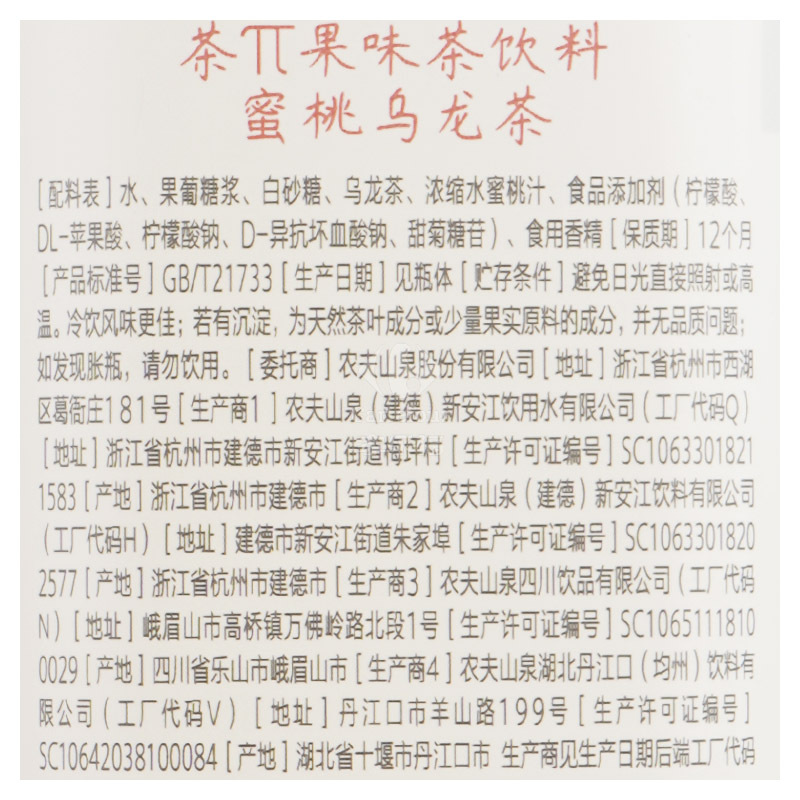 茶π果味茶饮料
蜜桃乌龙茶
[配料表]水、果葡糖浆、白砂糖、乌龙茶、浓缩水蜜桃汁、食品添加剂(柠檬酸、
DL-苹果酸、柠檬酸钠、D-异抗坏血酸钠、甜菊糖苷)、食用香精[保质期]12个月
[产品标准号]GB/T21733[生产日期]见瓶体[贮存条件]避免日光直接照射或高
温。冷饮风味更佳;若有沉淀,为天然茶叶成分或少量果实原料的成分,并无品质问题;
如发现胀瓶,请勿饮用。[委托商]农夫山泉股份有限公司[地址]浙江省杭州市西湖
区葛衙庄181号[生产商1]农夫山泉(建德)新安江饮用水有限公司(工厂代码Q)
[地址]浙江省杭州市建德市新安江街道梅坪村[生产许可证编号]SC1063301821
1583[产地]浙江省杭州市建德市[生产商2]农夫山泉(建德)新安江饮料有限公司
(工厂代码H)[地址]建德市新安江街道朱家埠[生产许可证编号]SC1063301820
2577[产地]浙江省杭州市建德市[生产商3]农夫山泉四川饮品有限公司(工厂代码
N)[地址]峨眉山市高桥镇万佛岭路北段1号[生产许可证编号]SC1065111810
0029[产地]四川省乐山市峨眉山市[生产商4]农夫山泉湖北丹江口(均州)饮料有
限公司(工厂代码V)[地址]丹江口市羊山路199号[生产许可证编号]
SC10642038100084[产地]湖北省十堰市丹江口市 生产商见生产日期后端工厂代码